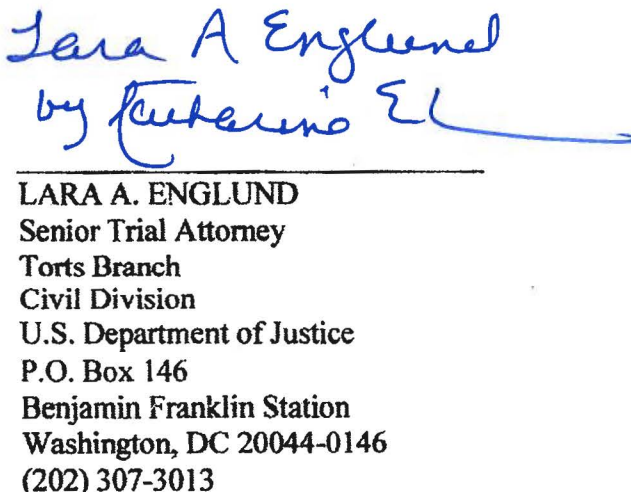 Lara A Englund
by Katharine E
LARA A. ENGLUND
Senior Trial Attorney
Torts Branch
Civil Division
U.S. Department of Justice
P.O. Box 146
Benjamin Franklin Station
Washington, DC 20044-0146
(202) 307-3013